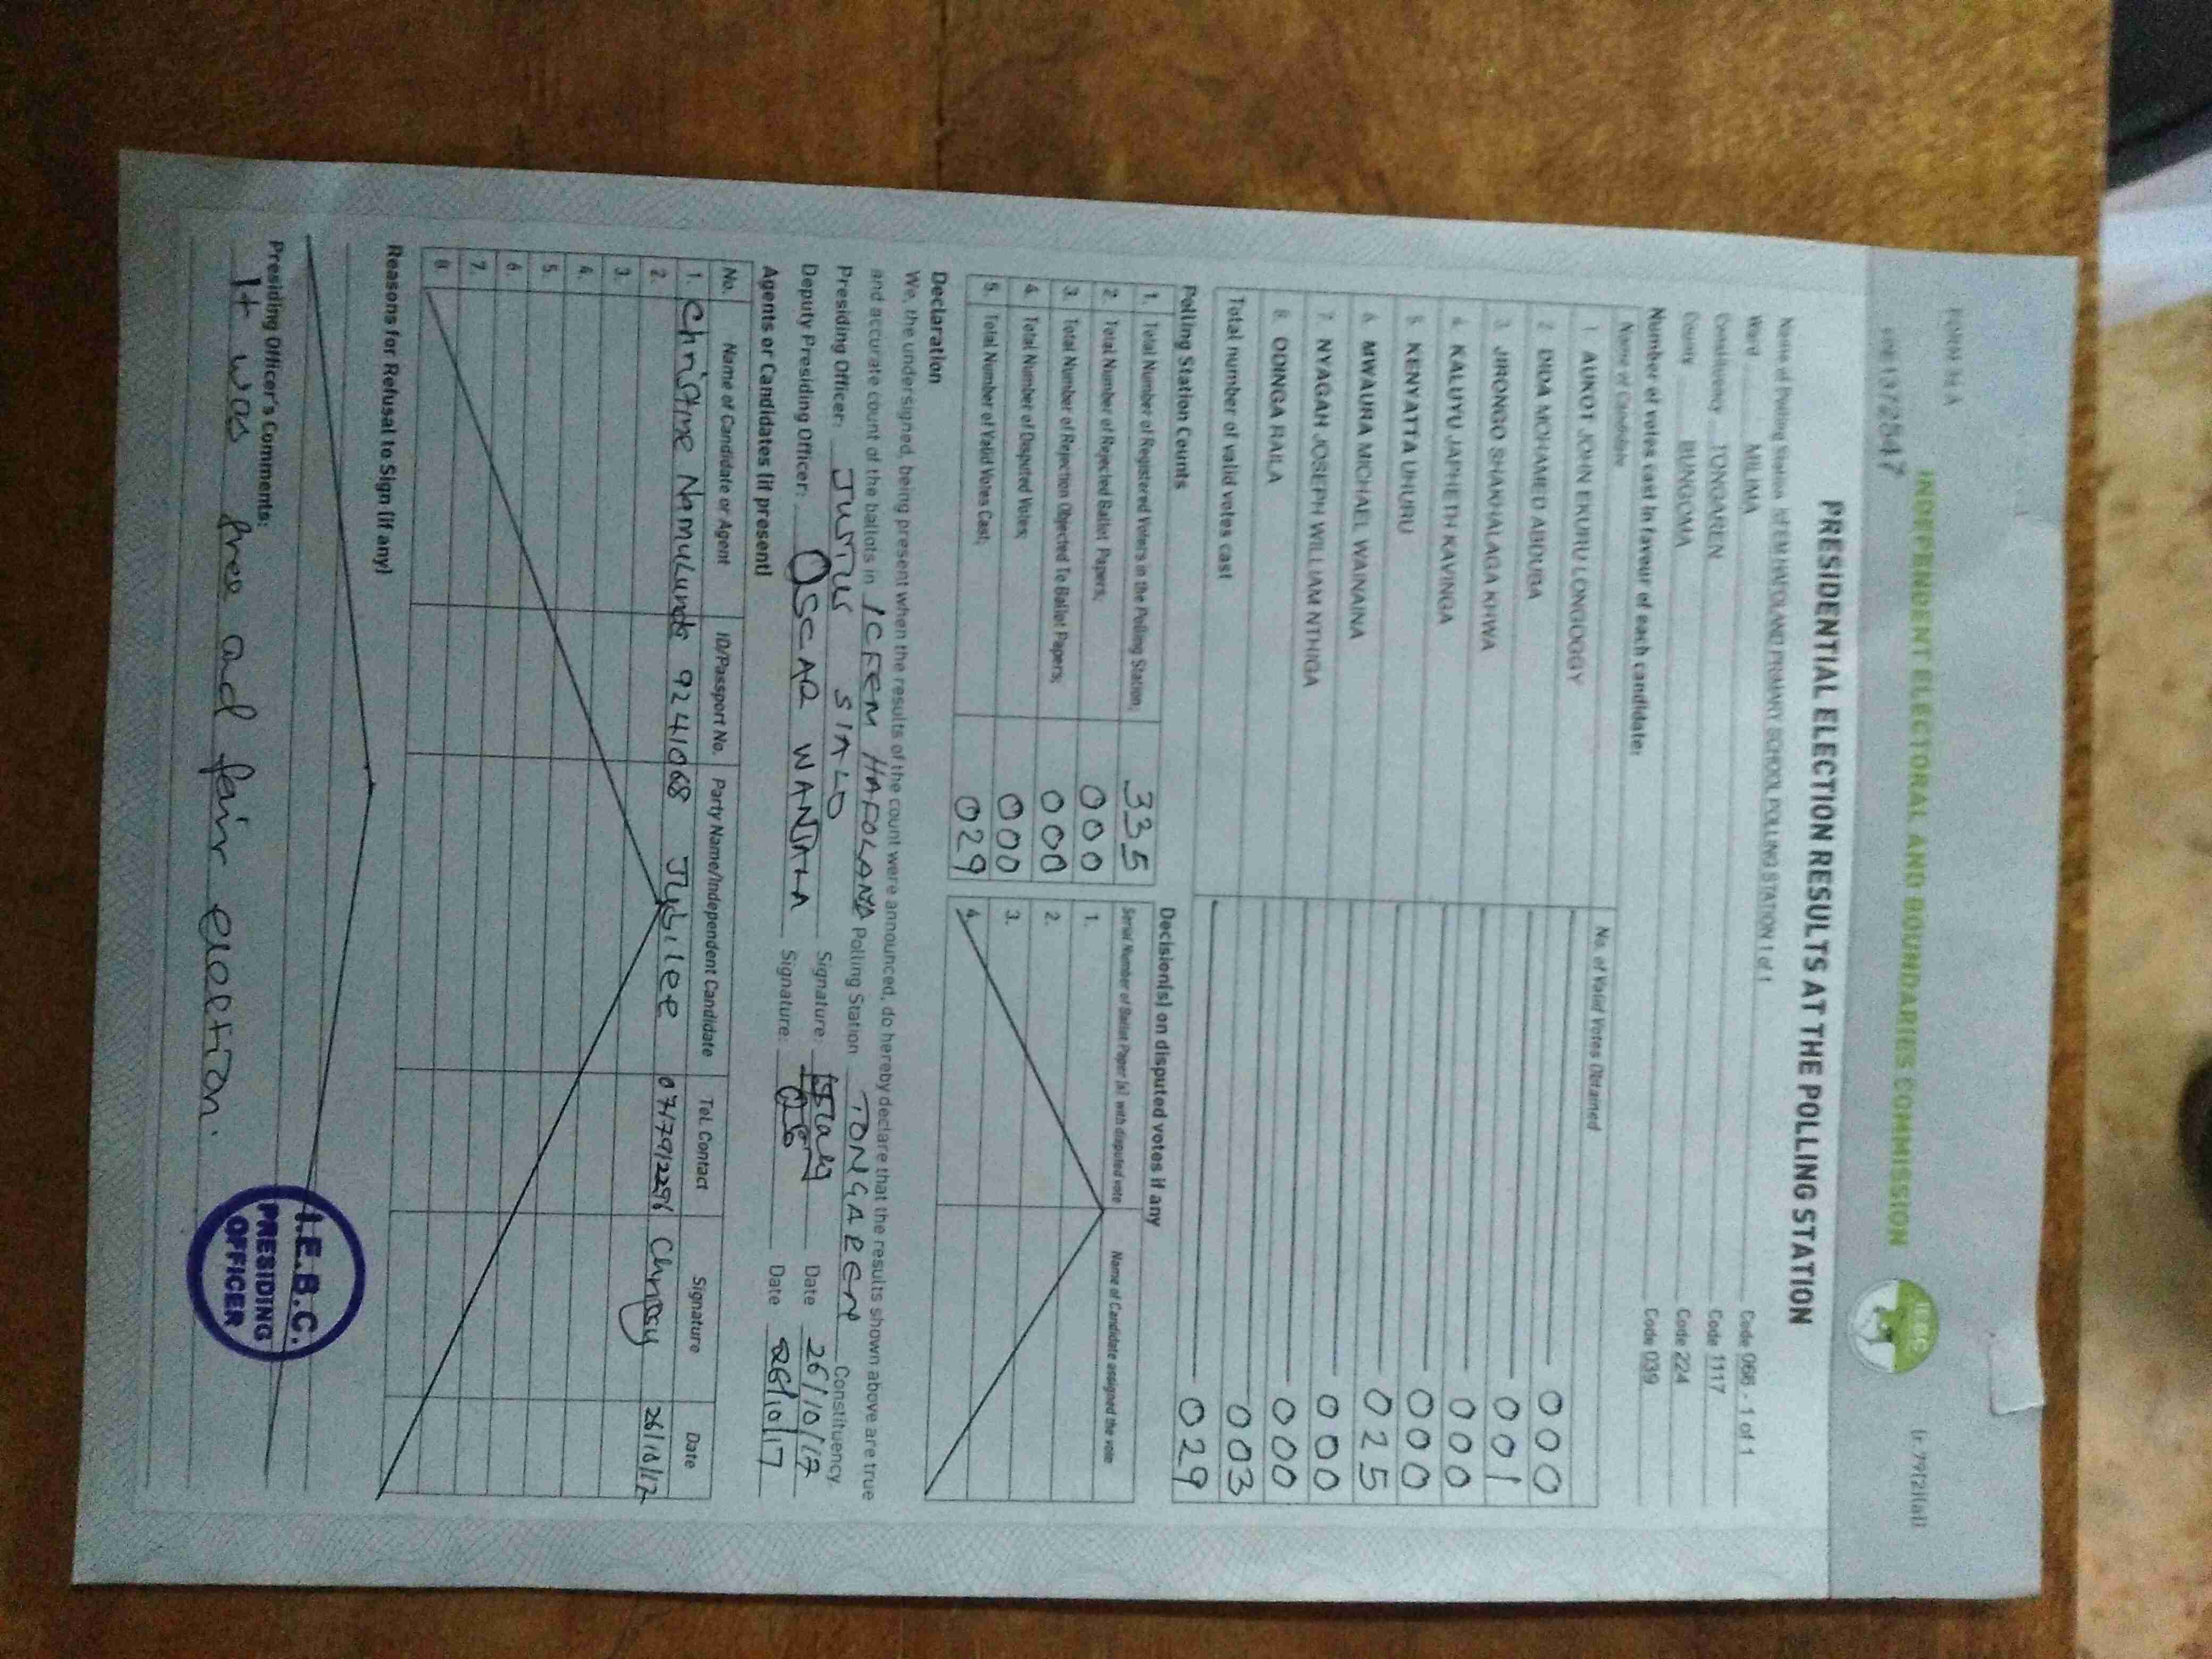 FORM 34 A
(r.79(2)(a))
INDEPENDENT ELECTORAL AND BOUNDARIES COMMISSION
IEBC
PRESIDENTIAL ELECTION RESULTS AT THE POLLING STATION
Name of Polling Station ICFEM HAFOLAND PRIMARY SCHOOL POLLING STATION 1 of 1 Code 066 - 1 of 1
Ward MILIMA Code 1117
Constituency TONGAREN Code 224
County BUNGOMA Code 039
Number of votes cast in favour of each candidate:
Name of Candidate No. of Valid Votes Obtained
1. AUKOT JOHN EKURU LONGOGGY 000
2. DIDA MOHAMED ABDUBA 001
3. JIRONGO SHAKHALAGA KHWA 000
4. KALUYU JAPHETH KAVINGA 000
5. KENYATTA UHURU 025
6. MWAURA MICHAEL WAINAINA 000
7. NYAGAH JOSEPH WILLIAM NTHIGA 000
8. ODINGA RAILA 003
Total number of valid votes cast 029
Polling Station Counts
1. Total Number of Registered Voters in the Polling Station; 335
2. Total Number of Rejected Ballot Papers; 000
3. Total Number of Rejection Objected To Ballot Papers; 000
4. Total Number of Disputed Votes; 000
5. Total Number of Valid Votes Cast; 029
Decision(s) on disputed votes if any
Serial Number of Ballot Paper (s) with disputed vote Name of Candidate assigned the vote
1.
2.
3.
4.
Declaration
We, the undersigned, being present when the results of the count were announced, do hereby declare that the results shown above are true
and accurate count of the ballots in ICFEM HAFOLAND Polling Station TONGAREN Constituency.
Presiding Officer: JUSTUS SIALO Signature: Date 26/10/17
Deputy Presiding Officer: OSCAR WANJALA Signature: Date 26/10/17
Agents or Candidates (if present)
No. Name of Candidate or Agent ID/Passport No. Party Name/Independent Candidate Tel. Contact Signature Date
1. Christine Namulunda 9241068 Jubilee 0717912296 Chrissy 26/10/17
2.
3.
4.
5.
6.
7.
8.
Reasons for Refusal to Sign (if any)
Presiding Officer's Comments:
It was free and fair election.
I.E.B.C.
PRESIDING
OFFICER